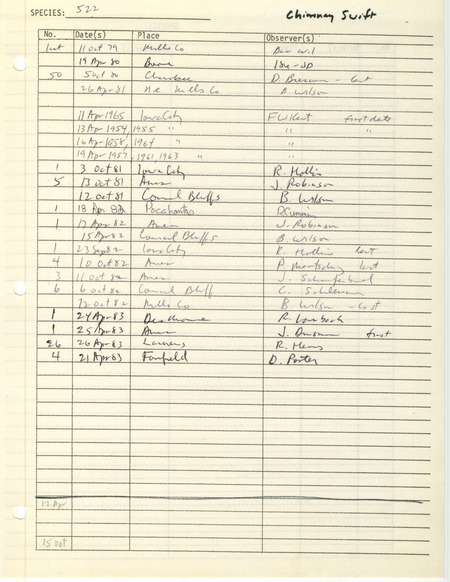 SPECIES: 522 Chimney Swift
No. Date(s) Place Observer(s)
last 11 Oct 79 Mills Co
19 Apr 80 Boone
50 5 Oct 80 Cherokee D. last
26 Apr 81 NE Mills Co B. Wilson
11 Apr 1965 Iowa City FW Kent first date
13 Apr 1954, 1955 " " "
16 Apr 1958, 1964 " "
19 Apr 1957, 1961, 1963 " "
1 3 Oct 81 Iowa City R. Hollis
5 13 Oct 81 Ames J. Robinson
12 Oct 81 Council Bluffs B. Wilson
1 18 Apr 82 Pocahontas
1 17 Apr 82 Ames J. Robinson
15 Apr 82 Council Bluffs B. Wilson
1 23 Sep 82 Iowa City R. Hollis last
4 10 Oct 82 Ames P. last
3 11 Oct 82 Ames J.
6 6 Oct 82 Council Bluff C.
12 Oct 82 Mills Co B. Wilson - last
1 24 Apr 83 R.
1 25 Apr 83 Ames J. Dinsmore first
26 26 Apr 83 Laurens R.
4 21 Apr 83 Fairfield D. Porter
12 Apr
15 Oct